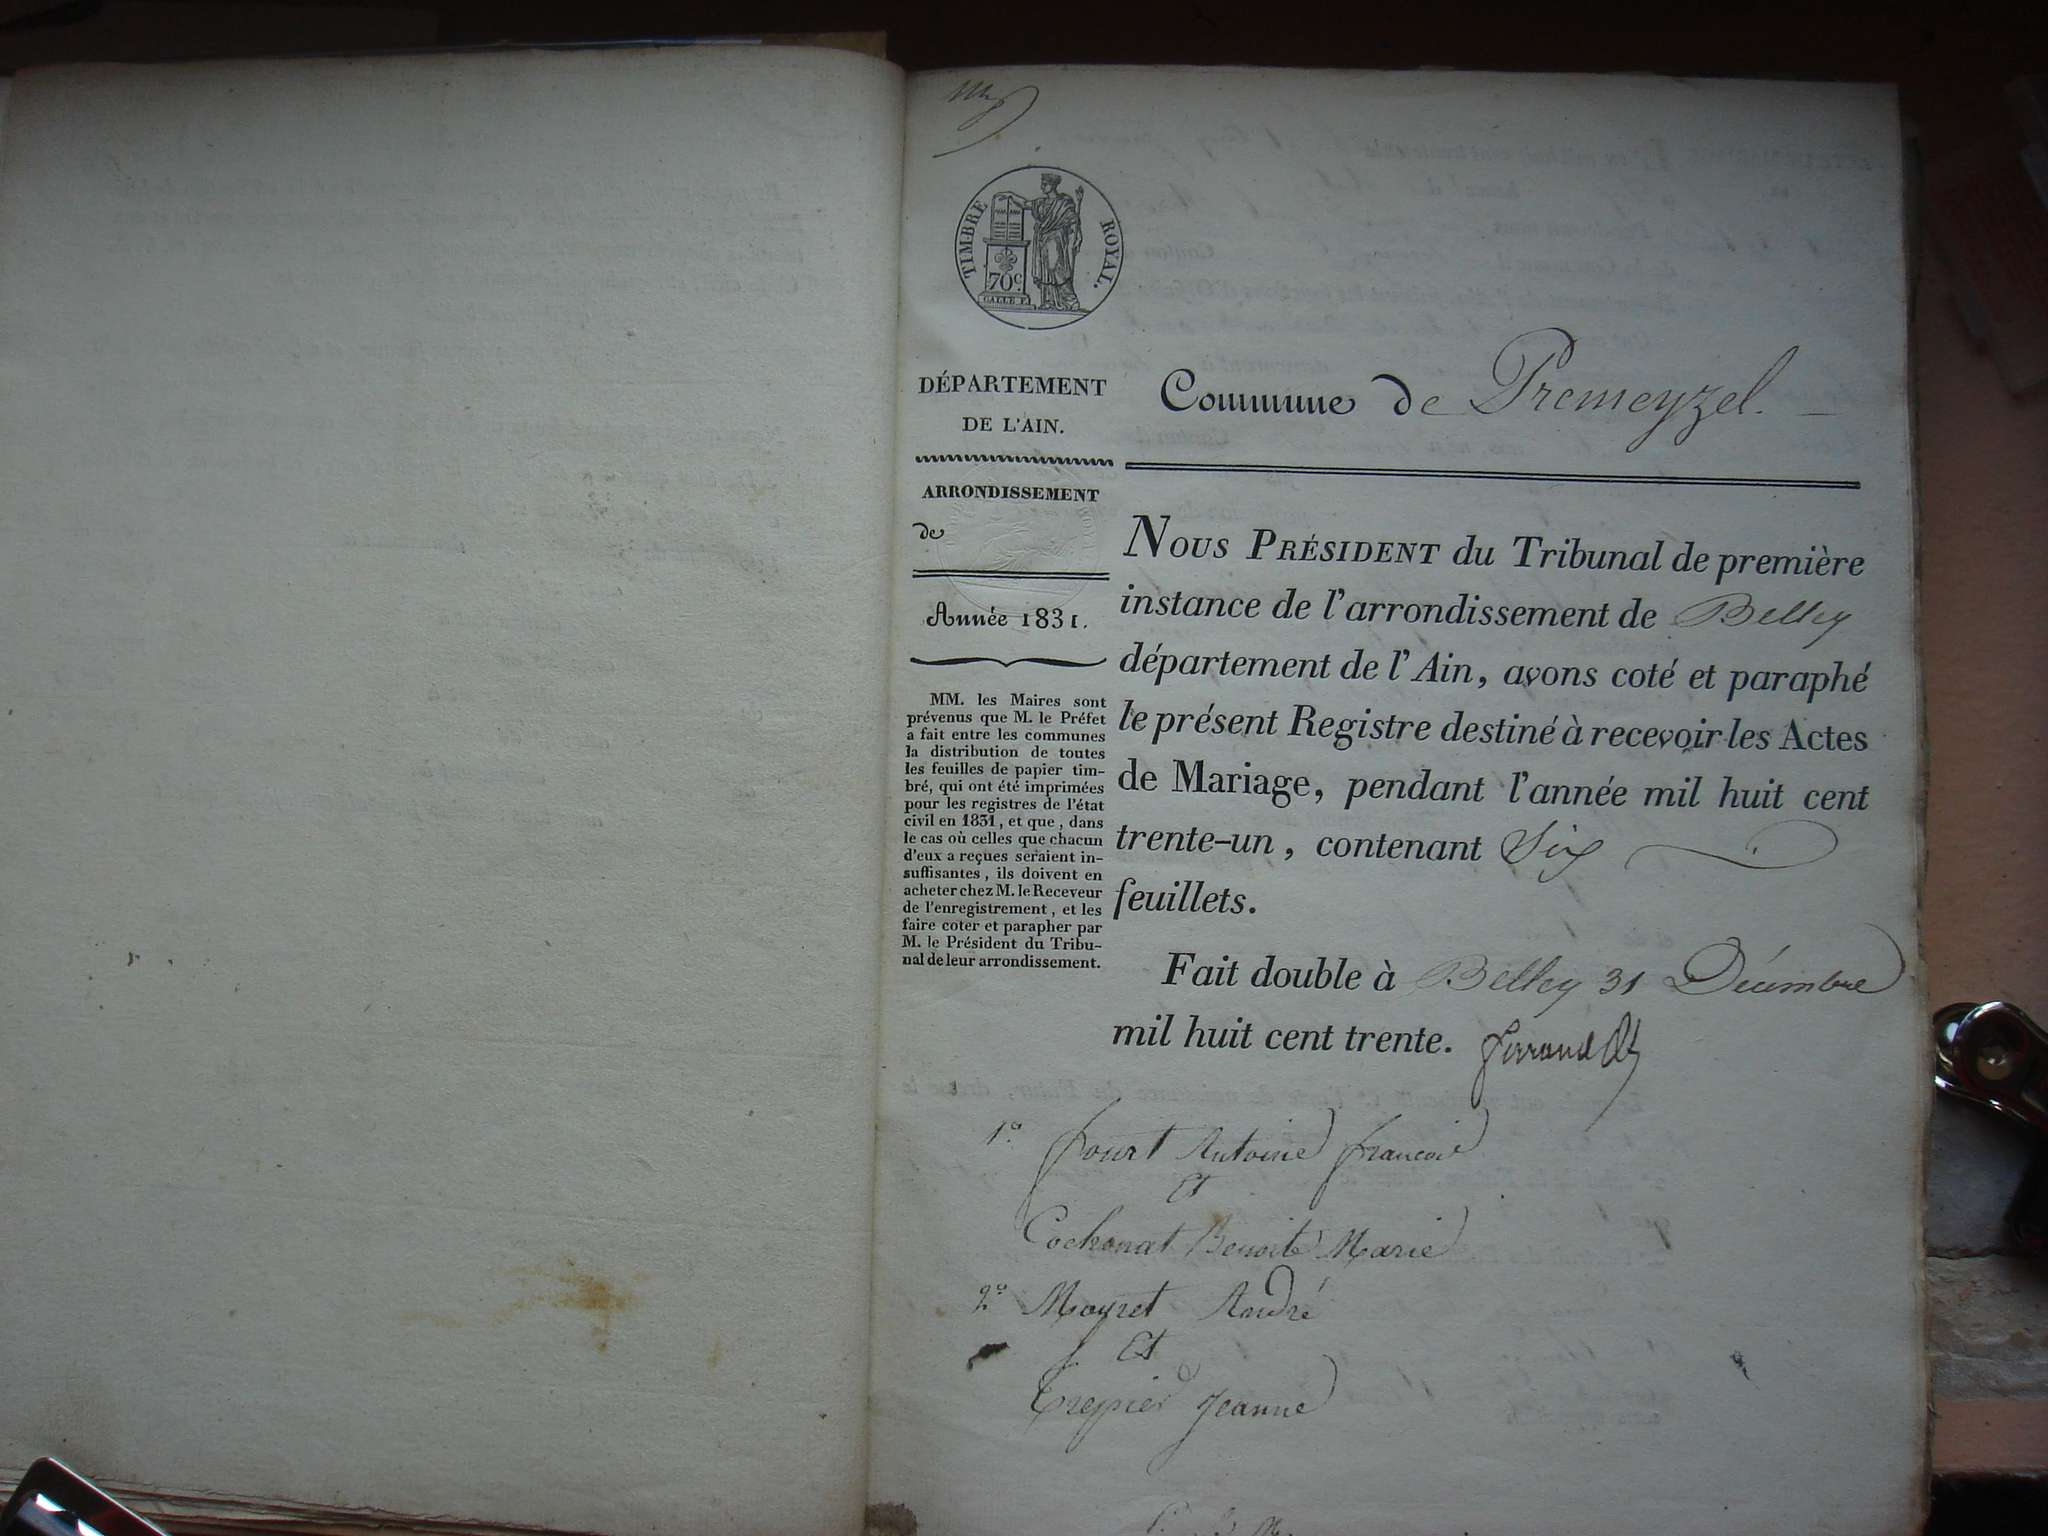 TIMBRE ROYAL.
70c.
CALLE F.
DÉPARTEMENT
DE L'AIN.
ARRONDISSEMENT
de
Année 1831.
MM. les Maires sont
prévenus que M. le Préfet
a fait entre les communes
la distribution de toutes
les feuilles de papier tim-
bré, qui ont été imprimées
pour les registres de l'état
civil en 1831, et que, dans
le cas où celles que chacun
d'eux a reçues seraient in-
suffisantes, ils doivent en
acheter chez M. le Receveur
de l'enregistrement, et les
faire coter et parapher par
M. le Président du Tribu-
nal de leur arrondissement.
Commune de Premeyzel.
NOUS PRÉSIDENT du Tribunal de première
instance de l'arrondissement de Belley
département de l'Ain, avons coté et paraphé
le présent Registre destiné à recevoir les Actes
de Mariage, pendant l'année mil huit cent
trente-un, contenant Six
feuillets.
Fait double à Belley 31 Décembre
mil huit cent trente.
1o. fourt Antoine francois
Et
Cochonat Benoite Marie
2o Moyret André
Et
Trepier Jeanne